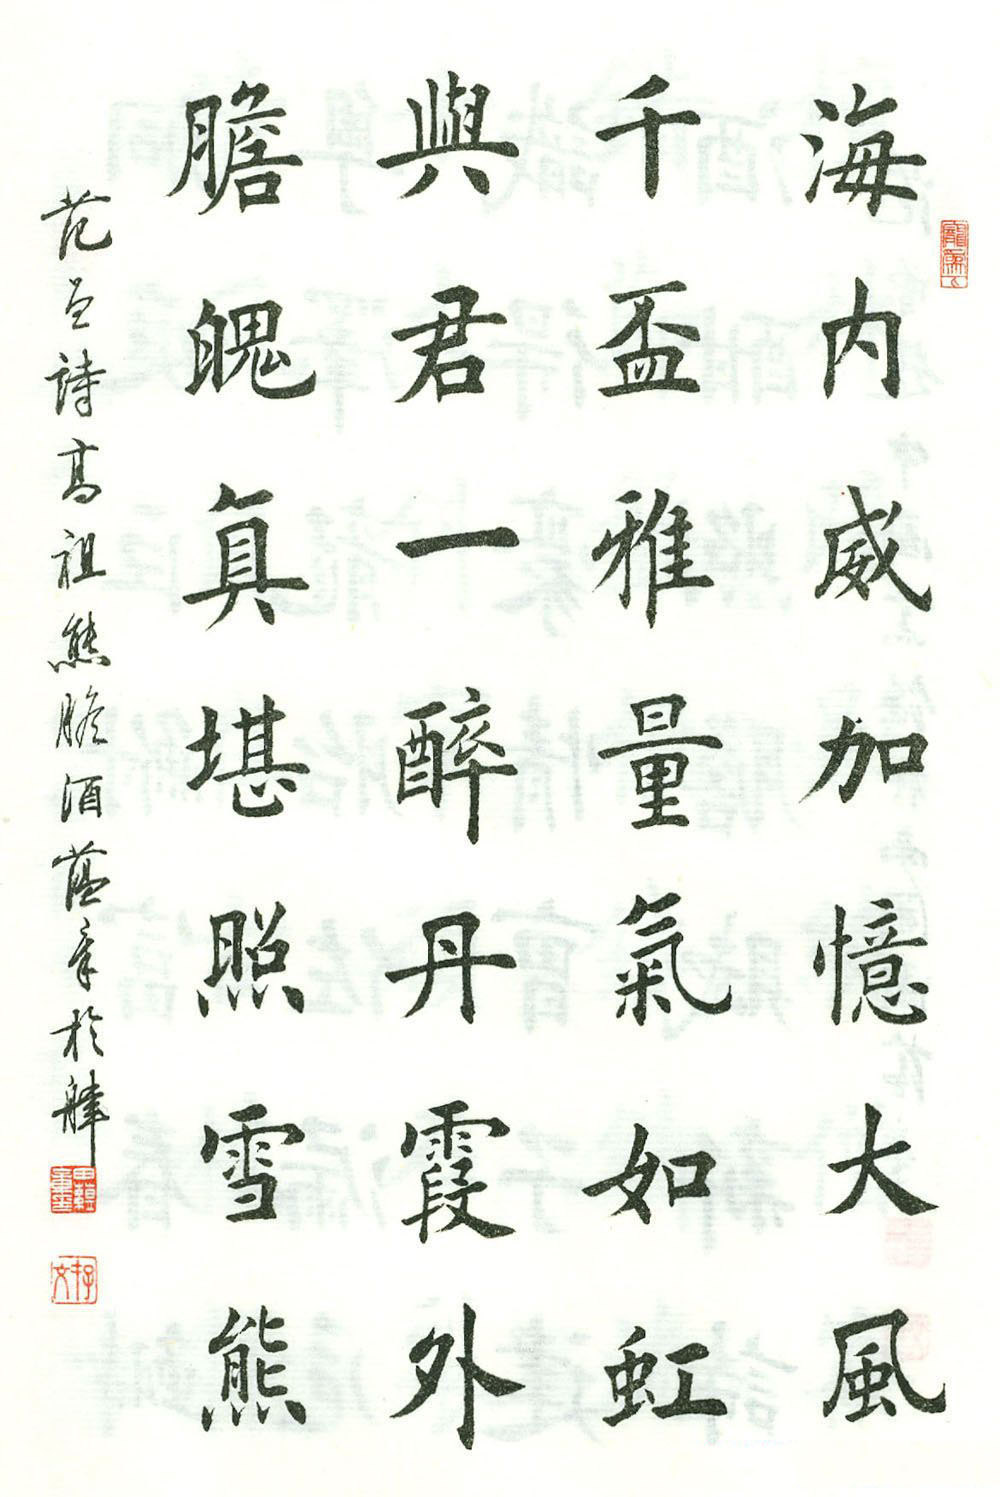 海内威加憶大風
千盃雅量氣如虹
與君一醉丹霞外
膽魄真堪照雪熊
詩高祖熊膽酒